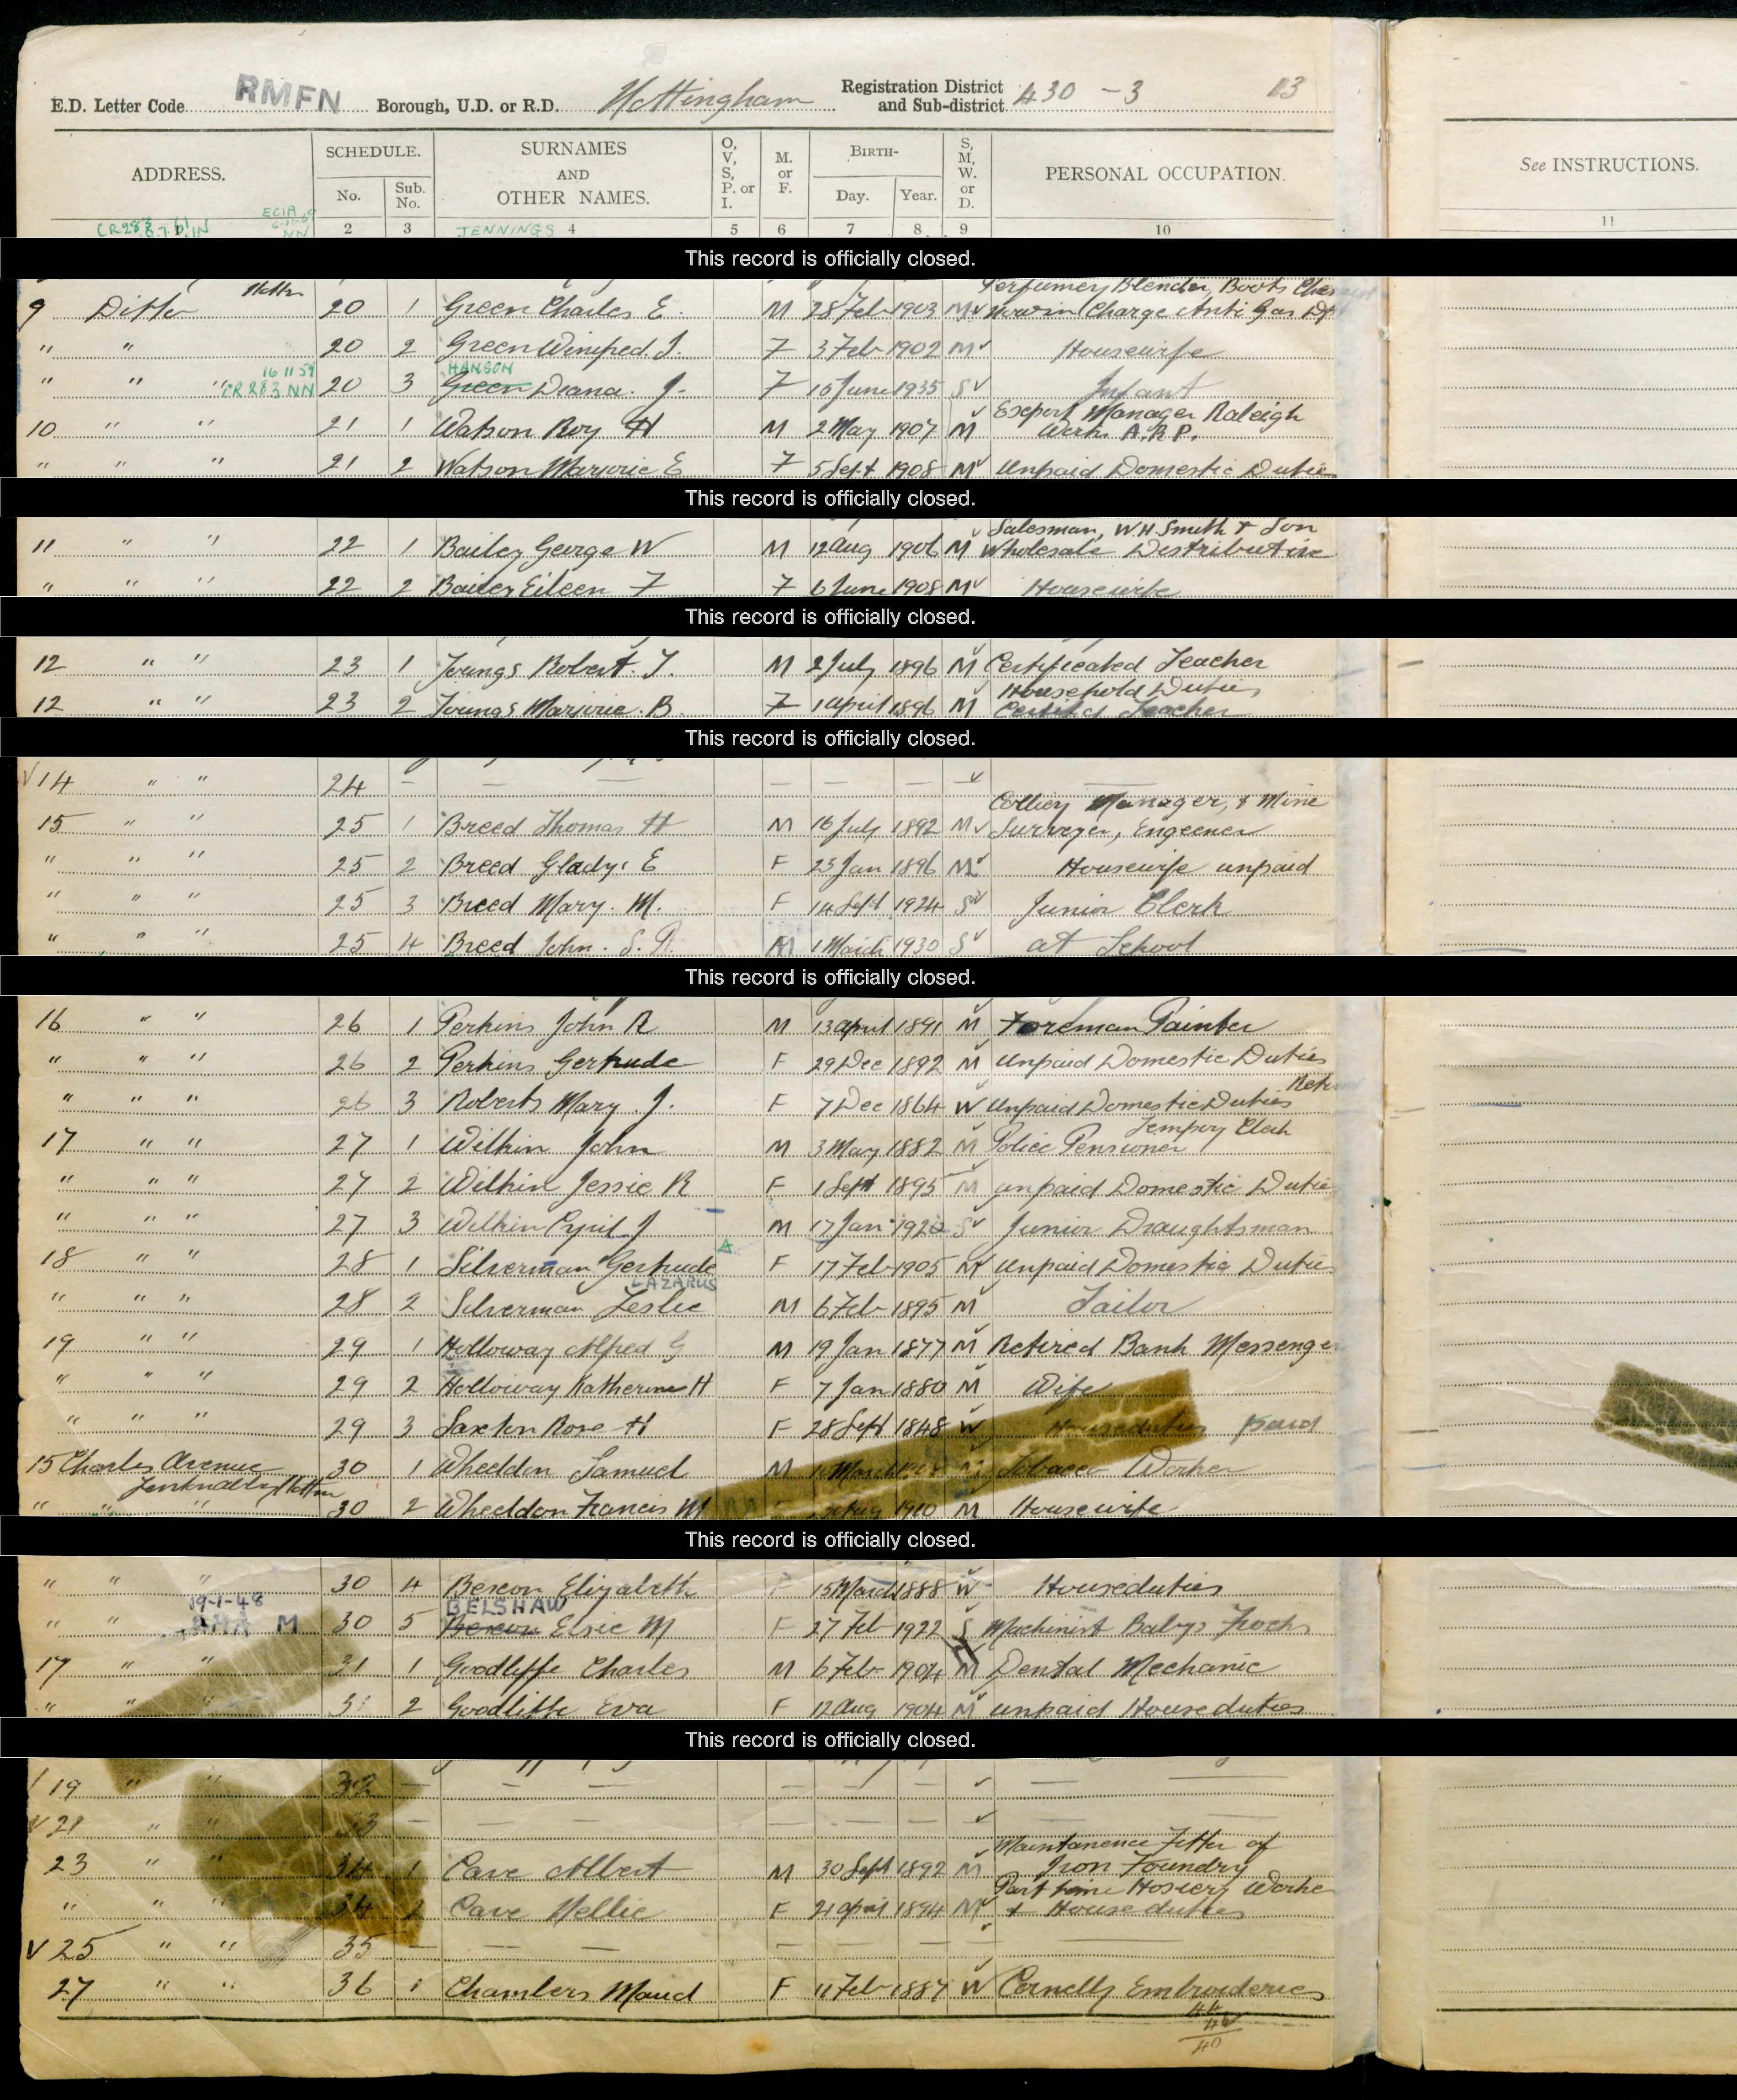 E.D. Letter Code RMFN Borough, U.D. or R.D. Nottingham Registration District and Sub-district 430 - 3 13
ADDRESS. SCHEDULE. No. Sub. No. SURNAMES AND OTHER NAMES. O, V, S, P. or I. M. or F. BIRTH- Day. Year. S, M, W. or D. PERSONAL OCCUPATION. See INSTRUCTIONS.
CR283 NN 2 3 JENNINGS 4 5 6 7 8 9 10 11
This record is officially closed.
Perfumery Blender, Boots
9 Ditto 20 1 Green Charles E. M 28 Feb 1903 M Charge Anti Gas
" " 20 2 Green Winifred J. F 3 Feb 1902 M Housewife
16 11 59 HANSON
" " " CR 283 NN 20 3 Green Diana. J. F 16 June 1935 S Infant
Export Manager Raleigh
10 " " 21 1 Watson Roy H M 2 May 1907 M Works A.R.P.
" " " 21 2 Watson Marjorie E F 5 Sept 1908 M Unpaid Domestic Duties
This record is officially closed.
Salesman, W.H. Smith & Son
11 " " 22 1 Bailey George W M 12 Aug 1906 M Wholesale Distributive
" " " 22 2 Bailey Eileen F F 6 June 1908 M Housewife
This record is officially closed.
12 " " 23 1 Youngs Robert. T. M 2 July 1896 M Certificated Teacher
Household Duties
12 " " 23 2 Youngs Marjorie. B. F 1 April 1896 M Certif'd Teacher
This record is officially closed.
14 " " 24 — — — — — — —
Colliery Manager, & Mine
15 " " 25 1 Breed Thomas H M 16 July 1892 M Surveyor, Engeener
" " " 25 2 Breed Gladys E F 23 Jan 1896 M Housewife unpaid
" " " 25 3 Breed Mary. M. F 14 Sept 1924 S Junior Clerk
" " " 25 4 Breed John. S. R. M 1 March 1930 S at School
This record is officially closed.
16 " " 26 1 Perkins John R M 13 April 1891 M Foreman Painter
" " " 26 2 Perkins Gertrude F 29 Dec 1892 M Unpaid Domestic Duties
" " " 26 3 Roberts Mary. J. F 7 Dec 1864 W Unpaid Domestic Duties
Tempory Clerk
17 " " 27 1 Wilkin John M 3 May 1882 M Police Pensioner
" " " 27 2 Wilkin Jessie R F 1 Sept 1895 M unpaid Domestic Duties
" " " 27 3 Wilkin Cyril J M 17 Jan 1920 S Junior Draughtsman
A
18 " " 28 1 Silverman Gertrude F 17 Feb 1905 M Unpaid Domestic Duties
LAZARUS
" " " 28 2 Silverman Leslie M 6 Feb 1895 M Tailor
19 " " 29 1 Holloway Alfred G M 19 Jan 1877 M Retired Bank Messenger
" " " 29 2 Holloway Katherine H F 7 Jan 1880 M Wife
" " " 29 3 Saxton Rose H F 28 Sept 1848 W Houseduties paid
15 Charles Avenue 30 1 Wheeldon Samuel M March M Tobacco Worker
Lenton Abbey Nottm
" " 30 2 Wheeldon Francis M Aug 1910 M Housewife
This record is officially closed.
" " " 30 4 Bexon Elizabeth F 15 March 1888 W Houseduties
19-1-48 BELSHAW
" " M 30 5 Bexon Elsie M F 27 Feb 1922 S Machinist Babys Frocks
17 " " 31 1 Goodliffe Charles M 6 Febr 1904 M Dental Mechanic
" " " 31 2 Goodliffe Eva F 12 Aug 1904 M unpaid House duties
This record is officially closed.
19 " " 32 — — — — — — —
21 " " 33 — — — — — — —
Maintanence Fitter of
23 " " 34 1 Cave Albert M 30 Sept 1892 M Iron Foundry
Part time Hosiery Worker
" " " 34 2 Cave Nellie F 21 April 1894 M & House duties
25 " " 35 — — — — — — —
27 " " 36 1 Chambers Maud F 11 Feb 1887 W Cornelly Embroideries
40